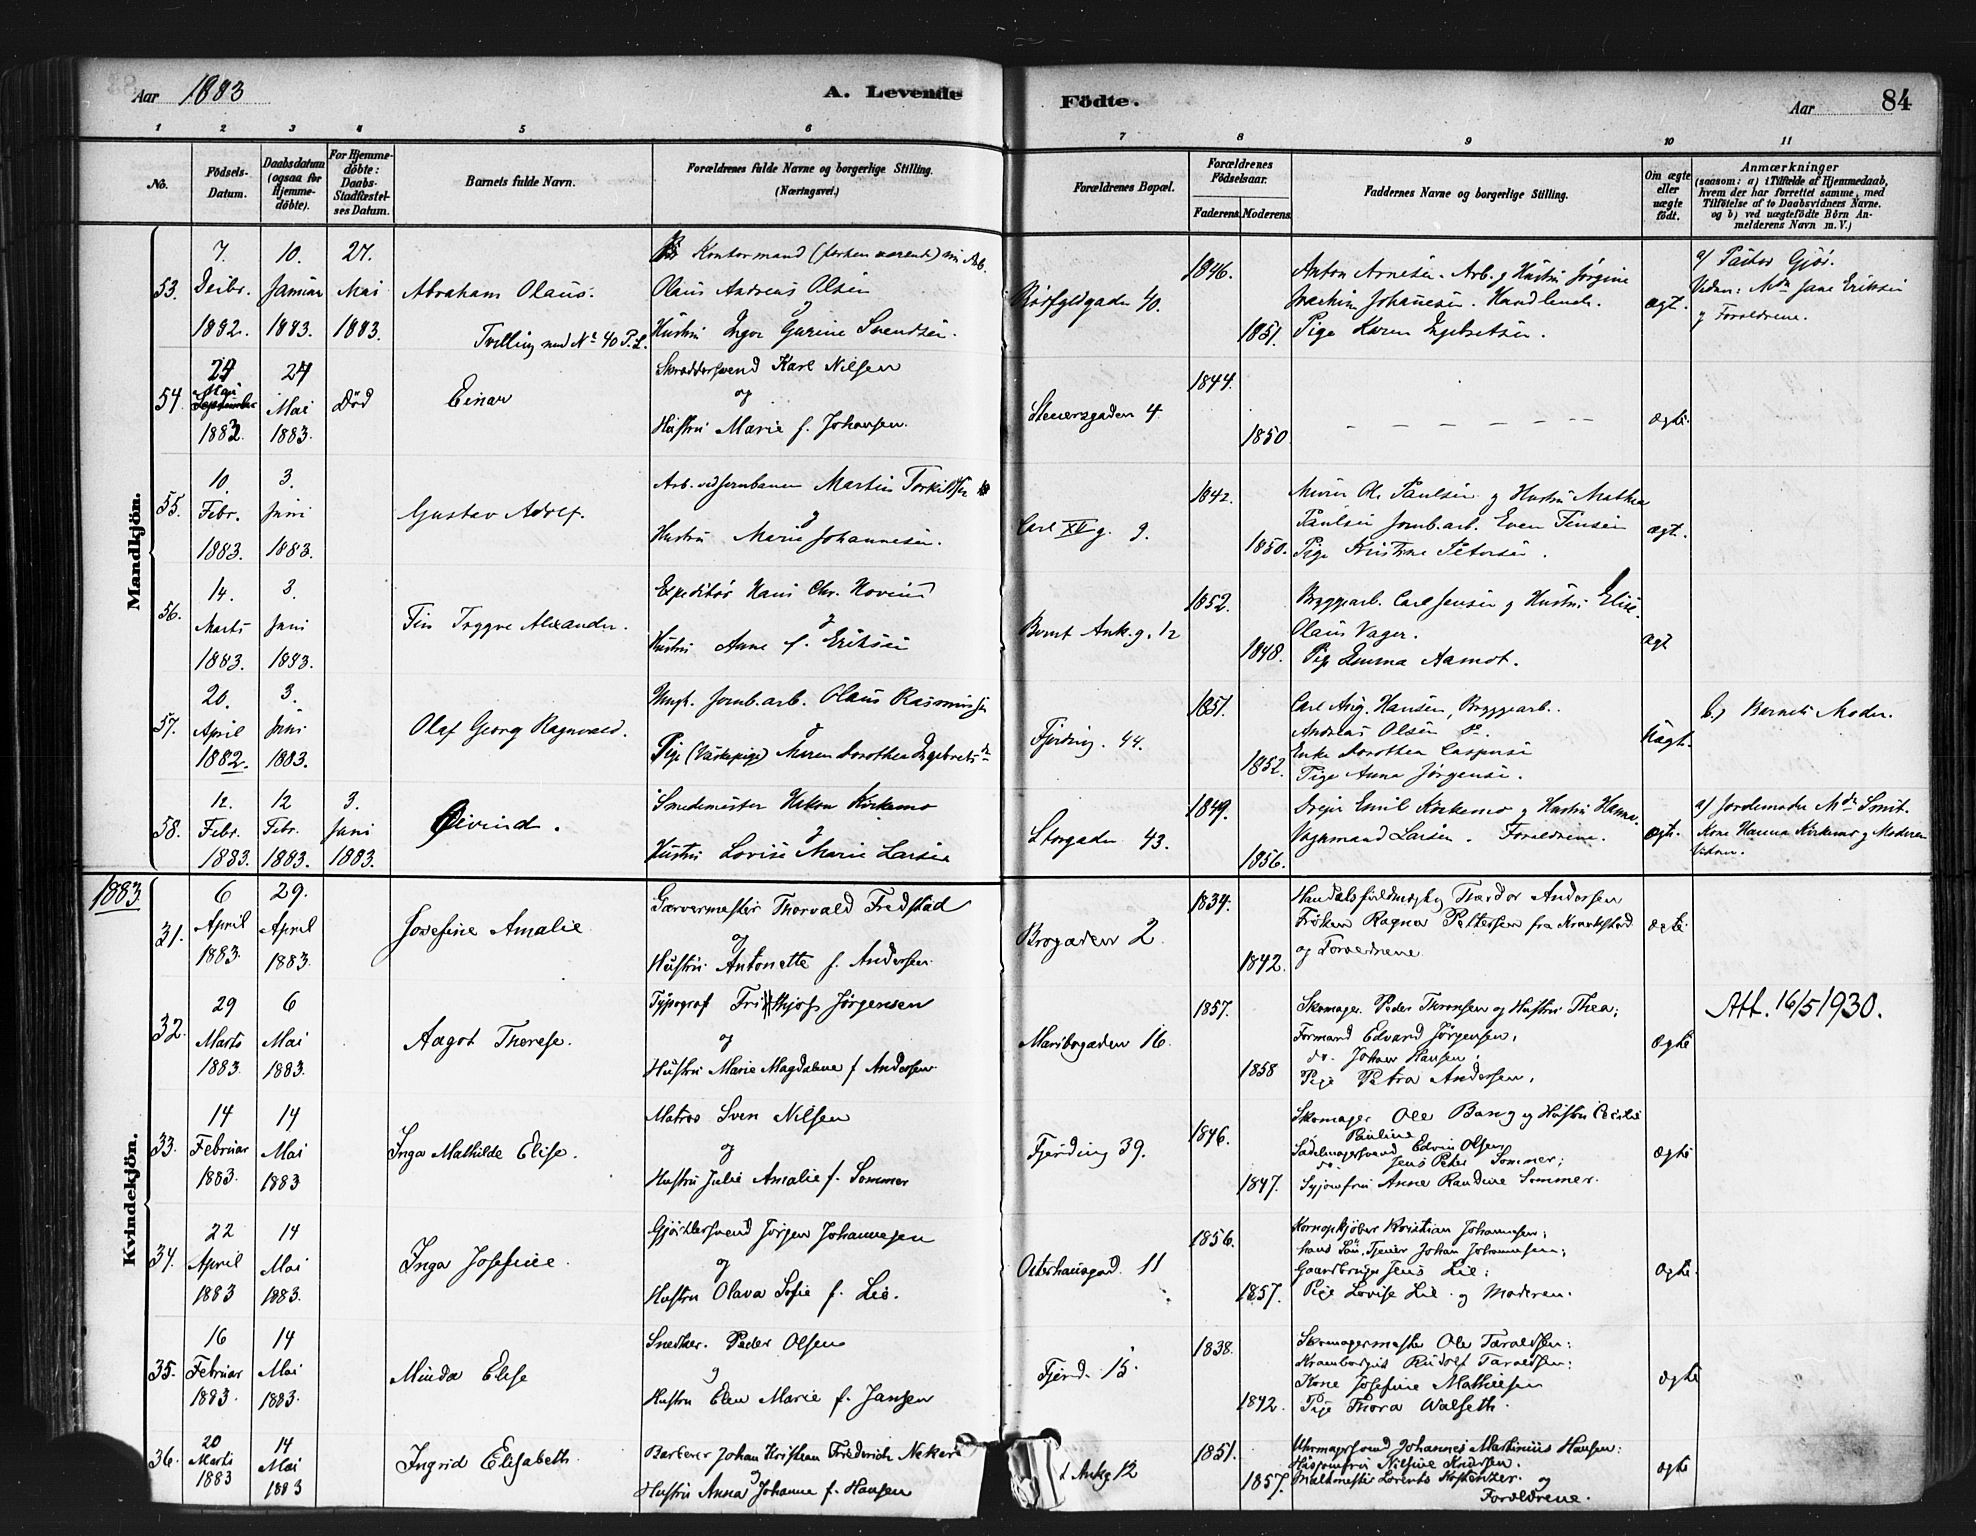 Aar 1883
A. Levende Födte.
Aar 84
1 2 3 4 5 6 7 8 9 10 11
No.
Födsels-Datum.
Daabsdatum (ogsaa for Hjemme-döbte).
For Hjemme-döbte: Daabs-Stadfæstel-ses Datum.
Barnets fulde Navn.
Forældrenes fulde Navne og borgerlige Stilling. (Næringsvei.)
Forældrenes Bopæl.
Forældrenes Födselsaar.
Faderens. Moderens.
Faddernes Navne og borgerlige Stilling.
Om ægte eller uægte født.
Anmærkninger
(saasom: a) i Tilfælde af Hjemmedaab, hvem der har forrettet samme, med Tilföielse af to Daabsvidners Navne. og b) ved uægtefödte Börn An-melderens Navn m. V.)
Mandkjön.
53. 7. Decbr. 1882. 10. Januar 1883. 27. Mai 1883.
Abraham Olaus.
Tvilling med No 40 P.L.
Kontormand
Olaus Andreas Olsen
og
Hustru Inger Gurine Svendsen.
40.
1846. 1851.
Anton Arnesen. Arb. og Hustru Jørgine
Joachim Johansen. Handlende.
Pige Karen Ingebretsen.
ægt.
a) Pastor Gjör.
Vidner: Jane Eriksen
og Forældrene.
54. 24 Mai 1883. 27 Mai 1883. Död
Einar
Skræddersvend Karl Nilsen
og
Hustru Marie f. Johansen.
Stenersgaden 4.
1844. 1850.
– – – – – –
ægte.
55. 10. Febr. 1883. 3. Juni 1883.
Gustav Adolf.
Arb. ved Jernbanen Martin Torkildsen
og
Hustru Marie Johannesen.
Carl XII g. 9.
1842. 1850.
Murer Ole Paulsen og Hustru Mathea
Paulsen Jernb.arb. Even
Pige Kristine Petersen.
ægt.
56. 14. Marts 1883. 3. Juni 1883.
Fin Trygve Alexander.
Expeditör Hans Chr.
og
Hustru Anne f. Eriksen
Bernt Ank.g. 12
1852. 1848.
Bryggearb. Carl Jensen og Hustru Elise.
Olaus Vager.
Pige Emma Aamot.
ægt
57. 20. April 1882. 3. Juni 1883.
Olaf Georg Ragnvald.
Ungk. Jernb.arb. Olaus Rasmussen
og
Pige Maren Dorothea Ingebretsdr
Fjerding. 44.
1851. 1852.
Carl Aug. Hansen, Bryggearb.
Andreas Olsen Do
Enke Dorothea Caspersen
Pige Anna Jörgensen.
uægt.
b) Barnets Moder.
58. 12. Febr. 1883. 12 Febr. 1883. 3. Juni 1883.
Öivind.
Smedemester Hakon Kirkemo
og
Hustru Lovise Marie Larsen
Storgaden 43.
1849. 1856.
Dreier Emil Kirkemo og Hustru Hanna.
Vognmand Larsen. Forældrene.
ægt.
a) Jordemoder Smit.
Kone Hanna Kirkemo og Moderen
Vidner.
Kvindekjön.
1883.
31. 6 April 1883. 29. April 1883.
Josefine Amalie
Garvermester Thorvald Fredstad
og
Hustru Antonette f. Andersen.
Brogaden 2.
1834. 1842.
Handelsfuldmægtig Theodor Andersen
Fröken Ragna Pettersen fra
og Forældrene
ægte.
32. 29 Marts 1883. 6 Mai 1883.
Aagot Therese.
Typograf Frithjof Jørgensen
og
Hustru Marie Magdalene f. Andersen
Maribogaden 16.
1857. 1858
Skomager Peder Thronsen og Hustru Thea;
Formand Edvard Jørgensen,
do. Johan Hansen,
Pige Petra Andersen.
ægte
Att. 16/5 1930.
33. 14 Februar 1883. 14 Mai 1883
Inga Mathilde Elise.
Matros Sven Nilsen
og
Hustru Julie Amalie f. Sommer
Fjerding 39.
1846. 1847.
Skomager Ole Bang og Hustru Cecilie
Pauline
Sadelmagersvend Edvin Olsen,
do. Jens Peter Sommer;
Syjomfru Anne Randine Sommer.
ægte
34. 22 April 1883 14 Mai 1883.
Inga Josefine.
Gjørtlersvend Jørgen Johannesen
og
Hustru Olava Sofie f. Lie.
Osterhausgad. 11
1856. 1857.
Kornopkjøber Kristian Johannesen;
hans Søn, Tjener Johan Johannesen;
Gaardbruger Jens Lie;
Pige Lovise Lie og Moderen.
ægte.
35. 16 Februar 1883. 14 Mai 1883.
Minda Elise
Snedker. Peder Olsen
og
Hustru Elen Marie f. Jansen
Fjerd. 15.
1838. 1842.
Skomagermester Ole Taraldsen;
Rudolf Taraldsen;
Kone Josefine Mathiesen
Pige Thora Walseth.
ægte
36. 20 Marts 1883 14 Mai 1883
Ingrid Elisabeth
Barberer Johan Kristian Frederich
og
Hustru Anna Johanne f. Hansen
Ankg 12
1851. 1857.
Uhrmagersvend Johannes Martinius Hansen;
Husjomfru Nilsine Knudsen.
Maltmester Lorents og
Forældrene.
ægte